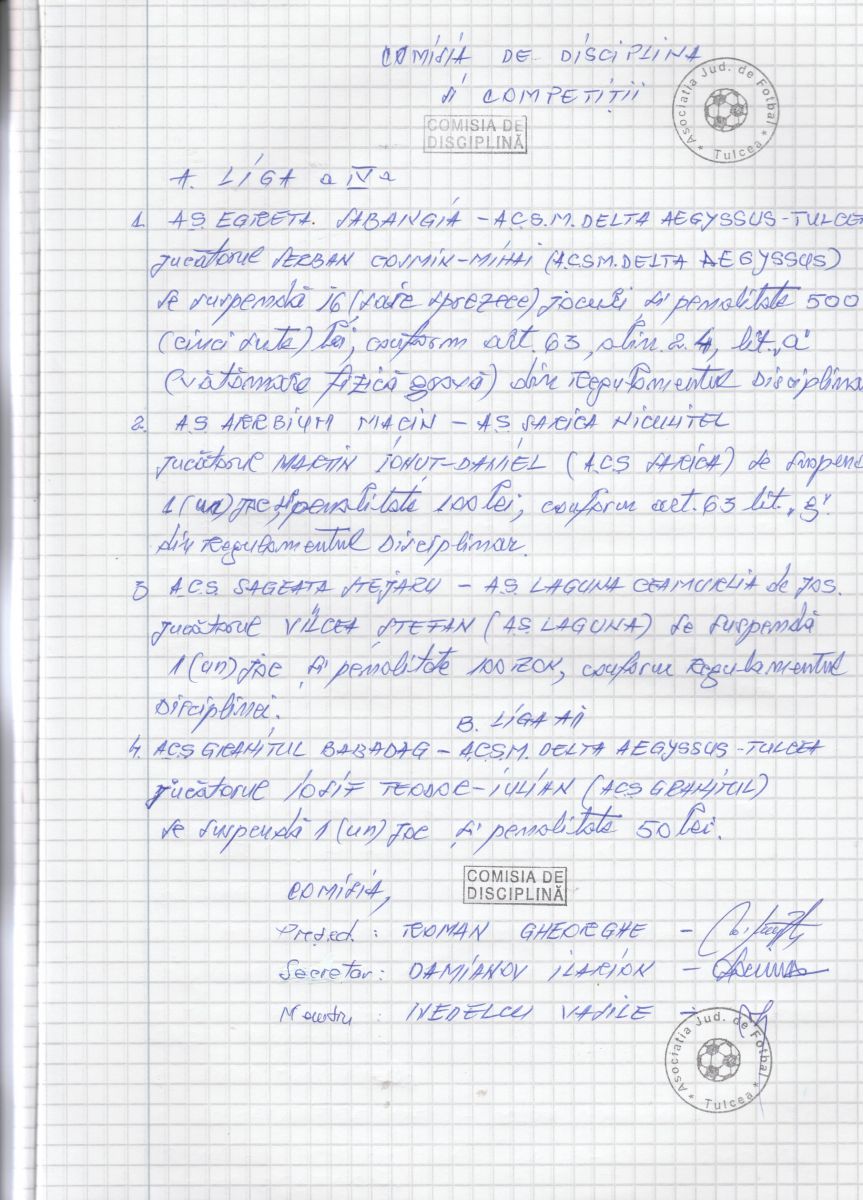 COMISIA DE DISCIPLINA
SI COMPETITII
Asociatia Jud. de Fotbal * Tulcea *
COMISIA DE
DISCIPLINĂ
A. LIGA a IV a
1. A.S. EGRETA SABANGIA - A.C.S.M. DELTA AEGYSSUS-TULCEA
jucătorul SERBAN COSMIN-MIHAI (A.C.S.M. DELTA AEGYSSUS)
se suspendă 16 (saisprezece) jocuri si penalitate 500
(cinci sute) lei, conform art. 63, alin. 2.4, lit. "a"
(vătămare fizică gravă) din Regulamentul Disciplinar
2. AS ARRBIUM MACIN - AS SARICA NICULITEL
jucătorul MARTIN IONUT-DANIEL (ACS SARICA) se suspend
1 (un) joc si penalitate 100 lei, conform art. 63 lit. "g"
din Regulamentul Disciplinar.
3 A.C.S. SAGEATA STEJARU - A.S. LAGUNA CEAMURLIA de JOS.
jucătorul VÎLCEA STEFAN (AS LAGUNA) se suspendă
1 (un) joc si penalitate 100 RON, conform Regulamentul
Disciplinei.
B. LIGA A II
4. ACS GRANITUL BABADAG - A.C.S.M. DELTA AEGYSSUS-TULCEA
jucătorul IOSIF TEODOR-IULIAN (ACS GRANITUL)
se suspendă 1 (un) joc și penalitate 50 lei.
COMISIA,
COMISIA DE
DISCIPLINĂ
Președ. : ROMAN GHEORGHE -
Secretar: DAMIANOV ILARION -
Membru : NEDELCU VASILE -
Asociatia Jud. de Fotbal * Tulcea *